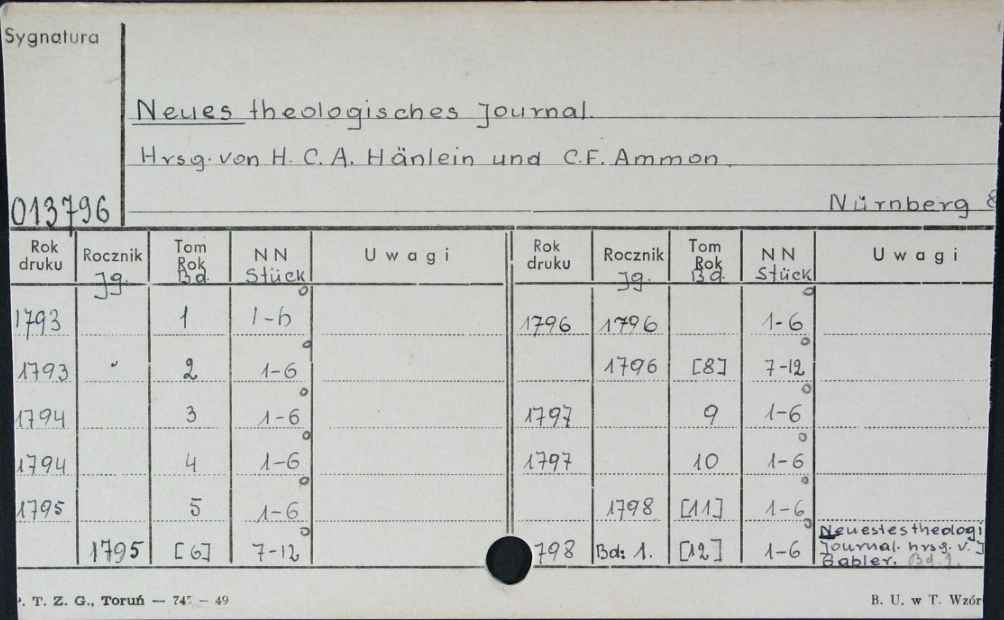 Sygnatura
Neues theologisches Journal.
Hrsg. von H. C. A. Hänlein und C.F. Ammon.
013796
Nürnberg 8
Rok druku Rocznik Jg. Tom Rok Bd. NN Stück Uwagi Rok druku Rocznik Jg. Tom Rok Bd. NN Stück Uwagi
1793 1 1-6 1796 1796 1-6
1793 " 2 1-6 1796 [8] 7-12
1794 3 1-6 1797 9 1-6
1794 4 1-6 1797 10 1-6
1795 5 1-6 1798 [11] 1-6
1795 [6] 7-12 798 Bd: 1. [12] 1-6 Neuestes theologi
Journal. hrsg. v. J
Gabler. Bd. 1.
T. Z. G., Toruń — 74 — 49
B. U. w T. Wzór